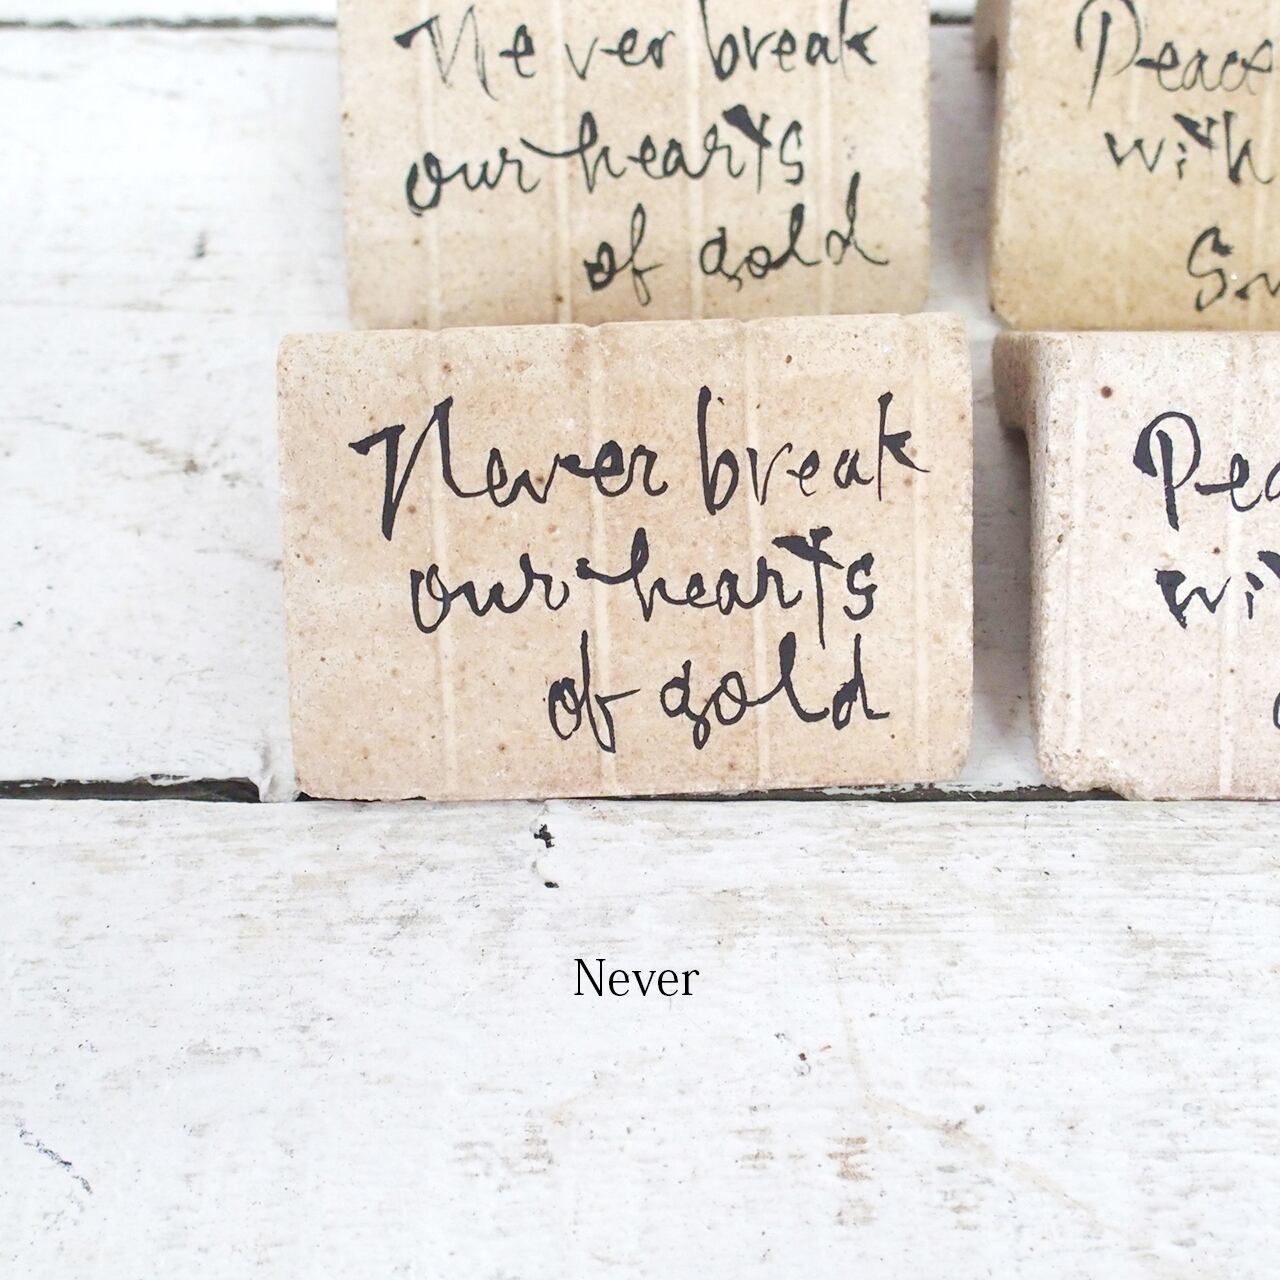 Never break
our hearts
of gold
Peace
with
Never break
our hearts
of gold
Never